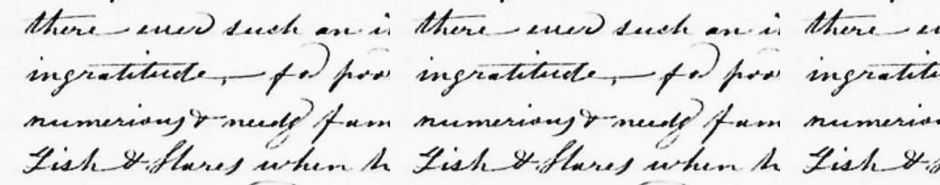 there ever such an i there ever such an i there e
ingratitude, — to poo ingratitude, — to poo ingratit
numerious & needy fam numerious & needy fam numerio
Fish & Hares when th Fish & Hares when th Fish &